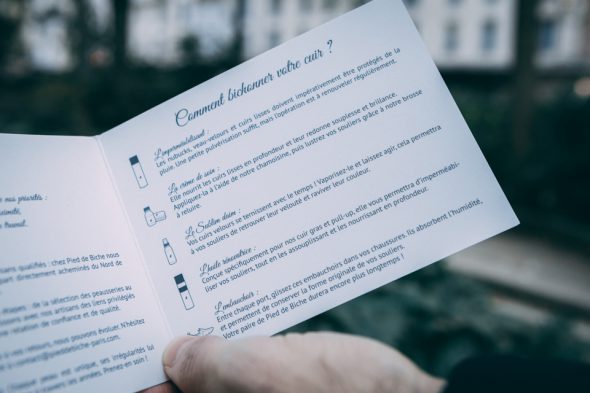 nos priorités :
travail.
ans qualifiés : chez Pied de Biche nous
part directement acheminés du Nord de
étapes : de la sélection des peausseries au
avec nos artisans des liens privilégiés
relation de confiance et de qualité.
à vos retours, nous pouvons évoluer. N'hésitez
contact@pieddebiche-paris.com.
peau est unique, ses irrégularités lui
à travers les années. Prenez-en soin !
Comment bichonner votre cuir ?
L'imperméabilisant :
Les nubucks, veau-velours et cuirs lisses doivent impérativement être protégés de la
pluie. Une petite pulvérisation suffit, mais l'opération est à renouveler régulièrement.
La crème de soin :
Elle nourrit les cuirs lisses en profondeur et leur redonne souplesse et brillance.
Appliquez-la à l'aide de notre chamoisine, puis lustrez vos souliers grâce à notre brosse
à reluire.
Le Sublim daim :
Vos cuirs velours se ternissent avec le temps ! Vaporisez-le et laissez agir, cela permettra
à vos souliers de retrouver leur velouté et raviver leur couleur.
L'huile rénovatrice :
Conçue spécifiquement pour nos cuir gras et pull-up, elle vous permettra d'imperméabi-
liser vos souliers, tout en les assouplissant et les nourrissant en profondeur.
L'embauchoir :
Entre chaque port, glissez ces embauchoirs dans vos chaussures. Ils absorbent l'humidité,
et permettent de conserver la forme originale de vos souliers.
Votre paire de Pied de Biche durera encore plus longtemps !